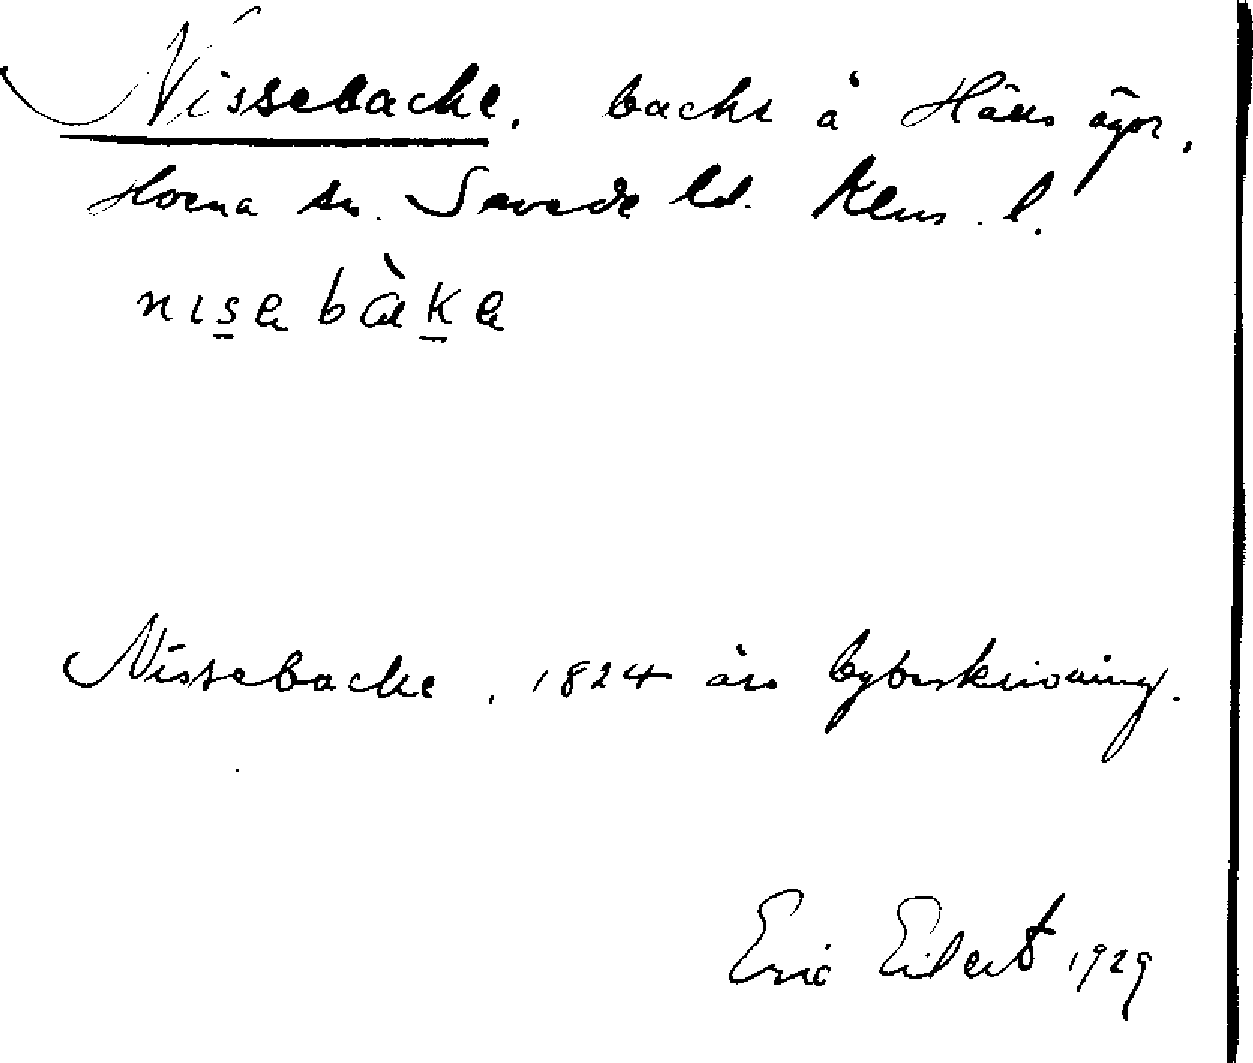 Nissebacke. backe å Hälls ägor,
Horna sn. Sevede hd. Klms. l.
nıs̲ə bàk̲ə
Nissebacke, 1824 års bybeskrivning.
Eric Eilert 1929